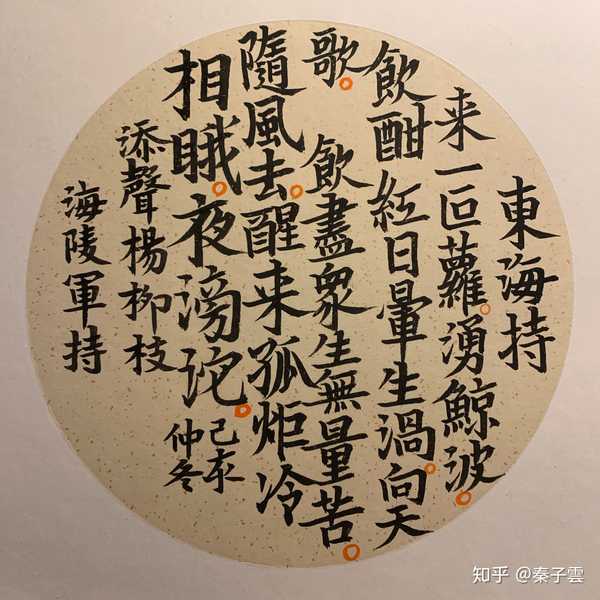 東海持
来一叵蘿。湧鯨波。
飲酣紅日暈生渦。向天
歌。 飲盡衆生無量苦。
隨風去。醒来孤炬冷
相睋。夜滂沱。己亥
仲冬
添聲楊柳枝
海陵軍持
知乎 @秦子雲